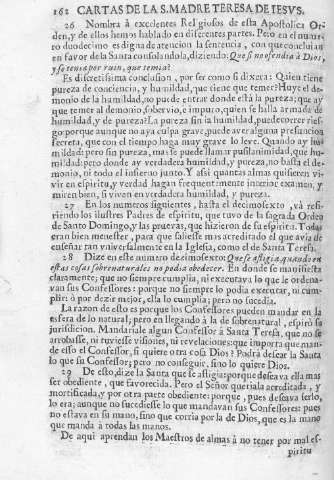 162 CARTAS DE LA S. MADRE TERESA DE IESVS.
26 Nombra à excelentes Religiosos de esta Apostolica Or-
den, y de ellos hemos hablado en diferentes partes. Pero en el nume-
ro duodecimo es digna de atencion la sentencia, con que concluían
en favor de la Santa consolandola, diziendo: Que si no ofendia à Dios,
y se tenia por ruin, que temia?
Es discretissima conclusion, por ser como si dixera: Quien tiene
pureza de conciencia, y humildad, que tiene que temer? Huye el de-
monio de la humildad, no puede entrar donde està la pureza; que ay
que temer al demonio, sobervio, è impuro, quien se halla armado de
humildad, y de pureza? La pureza sin la humildad, puede correr ries-
go: porque aunque no aya culpa grave, puede aver alguna presuncion
secreta, que con el tiempo haga muy grave lo leve. Quando ay hu-
mildad: pero sin pureza, mas se puede llamar pusilanimidad, que hu-
mildad: pero donde ay verdadera humildad, y pureza, no basta el de-
monio, ni todo el infierno junto. Y assi quantas almas quisieren vi-
vir en espiritu, y verdad hagan frequentemente interior examen, y
miren bien, si viven en verdadera humildad, y pureza.
27 En los numeros siguientes, hasta el decimosexto, và resi-
riendo los ilustres Padres de espiritu, que tuvo de la sagrada Orden
de Santo Domingo, y las pruevas, que hizieron de su espiritu. Todas
eran bien menester, para que saliesse mas acreditado el que avia de
enseñar tan universalmente en la Iglesia, como el de Santa Teresa.
28 Dize en este numero dezimosexto: Que se afligia, quando en
estas cosas sobrenaturales no podia obedecer. En donde se manifiesta
claramente; que no siempre cumplia, ni executava lo que le ordena-
van sus Confessores: porque no siempre lo podia executar, ni cum-
plir: ò por dezir mejor, ella lo cumplia; pero no sucedia.
La razon de esto es porque los Confessores pueden mandar en la
esfera de lo natural, pero en llegando à la de sobrenatural, espirò su
jurisdicion. Mandariale algun Confessor à Santa Teresa, que no se
arrobasse, ni tuviesse visiones, ni revelaciones: que importa que man-
de esso el Confessor, si quiere otra cosa Dios? Podrà desear la Santa
lo que su Confessor; pero no conseguir, sino lo quiere Dios.
29 De esto, dize la Santa que se afligia: porque deseava ella mas
ser obediente, que favorecida. Pero el Señor queriala acreditada, y
mortificada, y por otra parte obediente: porque, pues deseava serlo,
lo era; aunque no sucediesse lo que mandavan sus Confessores: pues
no estava en su mano, sino que corria por la de Dios, que es la mano
que manda à todas las manos.
De aqui aprendan los Maestros de almas à no tener por mal es-
piritu